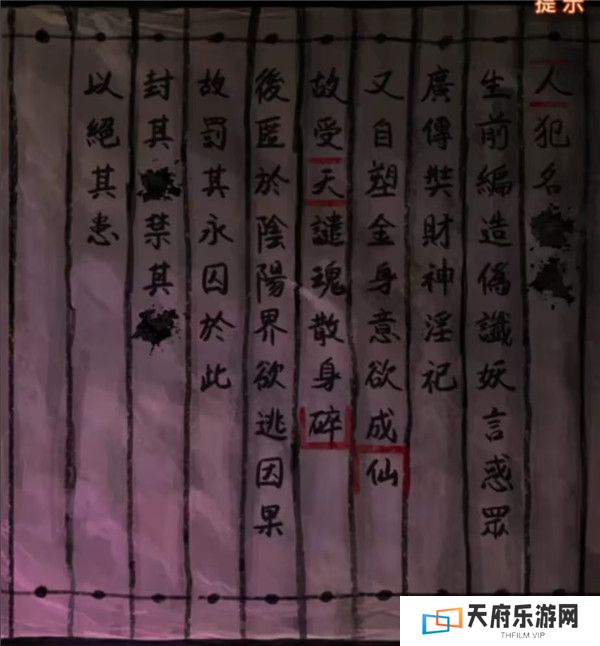 提示
人犯名
生前編造偽讖妖言惑眾
廣傳奘財神淫祀
又自塑金身意欲成仙
故受天譴魂散身碎
後匿於陰陽界欲逃因果
故罰其永囚於此
封其禁其
以絕其患
天府乐游网
THFILM.VIP